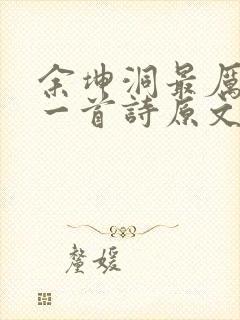 余坤洞最厲
一首詩原文
釐媛